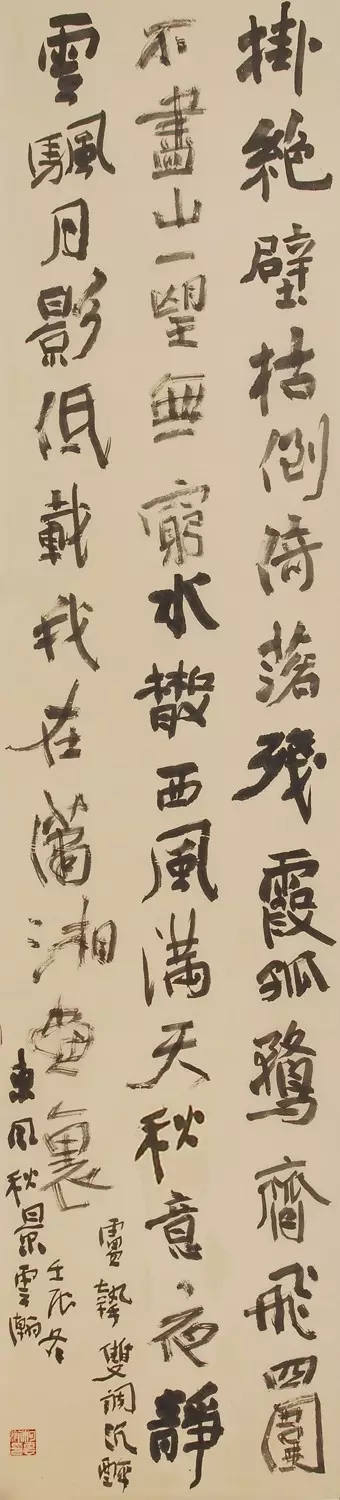 掛絶壁枯倒倚落殘霞孤鶩齊飛四圍
不盡山一望無窮水散西風滿天秋意夜靜
雲颿月影低載我在瀟湘畫裏
盧摯雙調沉醉
東風秋景雲瀚
壬辰冬